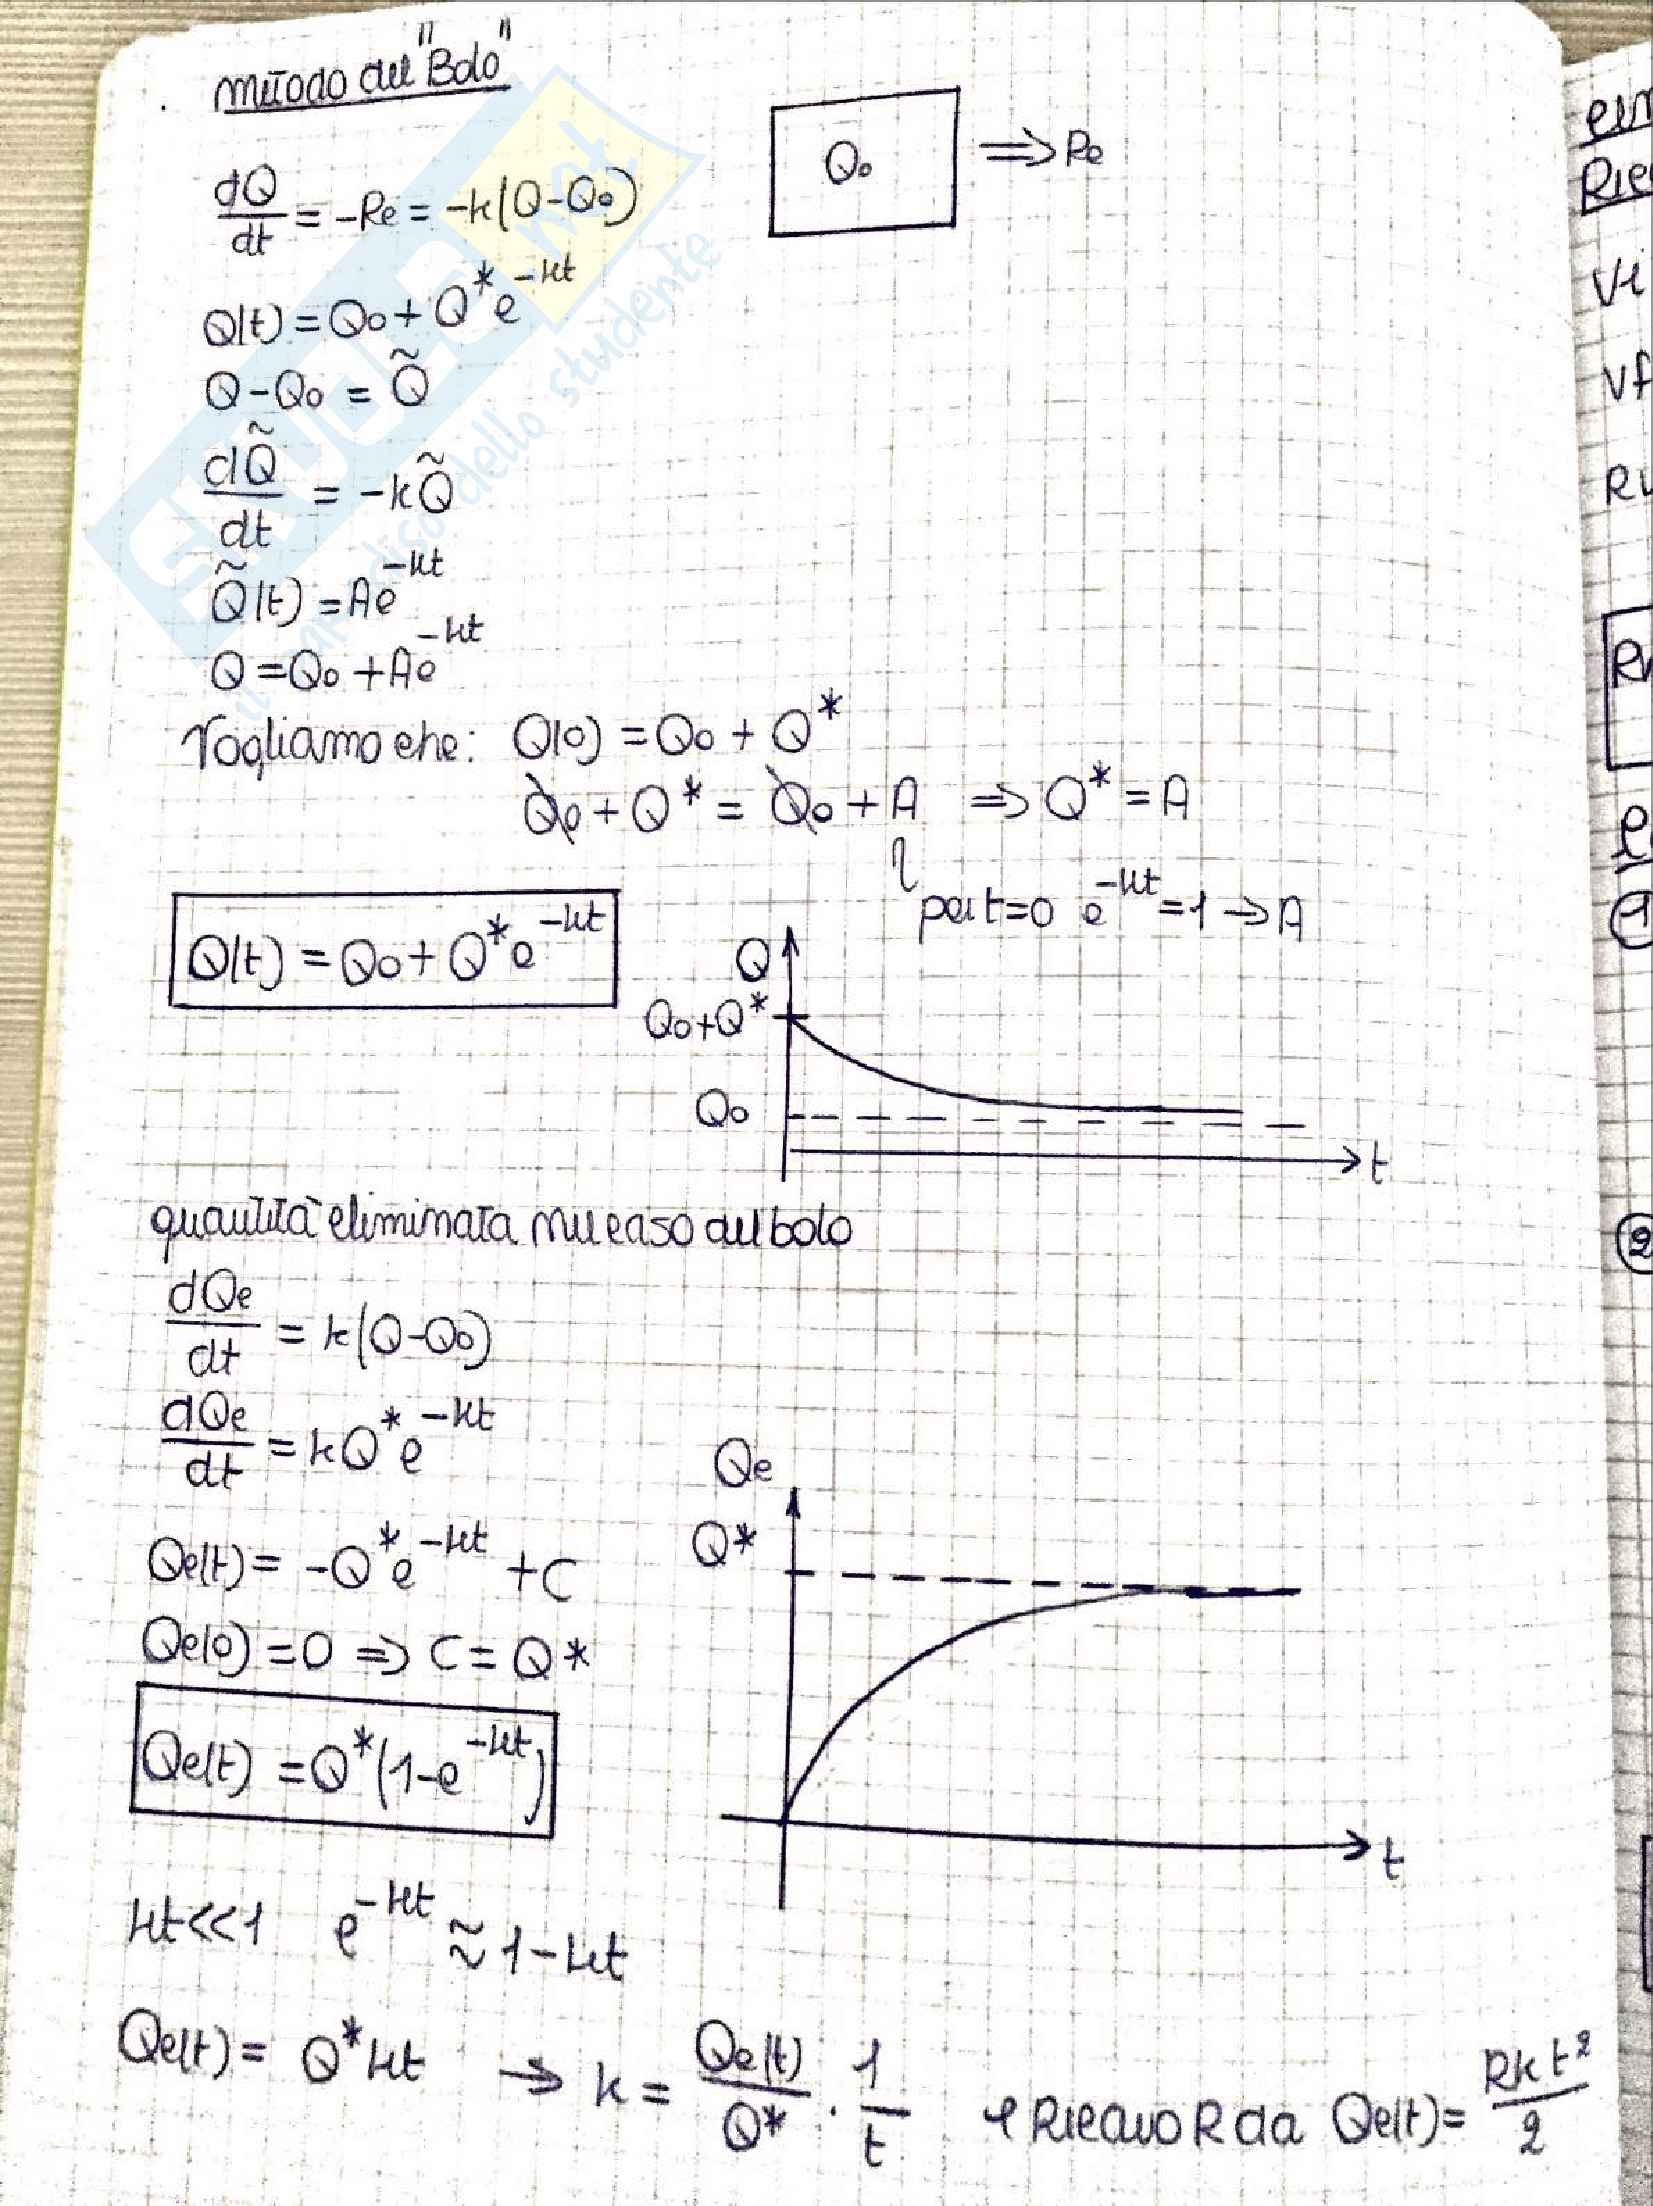 Metodo del "Bolo"
dQ/dt = -Re = -k(Q-Q₀)
Q₀ ⇒ Re
Q(t) = Q₀ + Q*e^-kt
Q-Q₀ = Q̃
dQ̃/dt = -kQ̃
Q̃(t) = Ae^-kt
Q = Q₀ + Ae^-kt
Vogliamo che: Q(0) = Q₀ + Q*
Q₀ + Q* = Q₀ + A ⇒ Q* = A
per t=0 e^-kt = 1 → A
Q(t) = Q₀ + Q*e^-kt
Q
Q₀+Q*
Q₀
t
quantità eliminata nel caso del bolo
dQe/dt = k(Q-Q₀)
dQe/dt = kQ*e^-kt
Qe(t) = -Q*e^-kt + C
Qe(0) = 0 ⇒ C = Q*
Qe(t) = Q*(1-e^-kt)
Qe
Q*
t
kt<<1 e^-kt ≈ 1-kt
Qe(t) = Q*kt → k = Qe(t)/Q* · 1/t e ricavo R da Qe(t) = Rkt²/2
SKUOLA.net
il paradiso dello studente
Vi
Vf
1
2